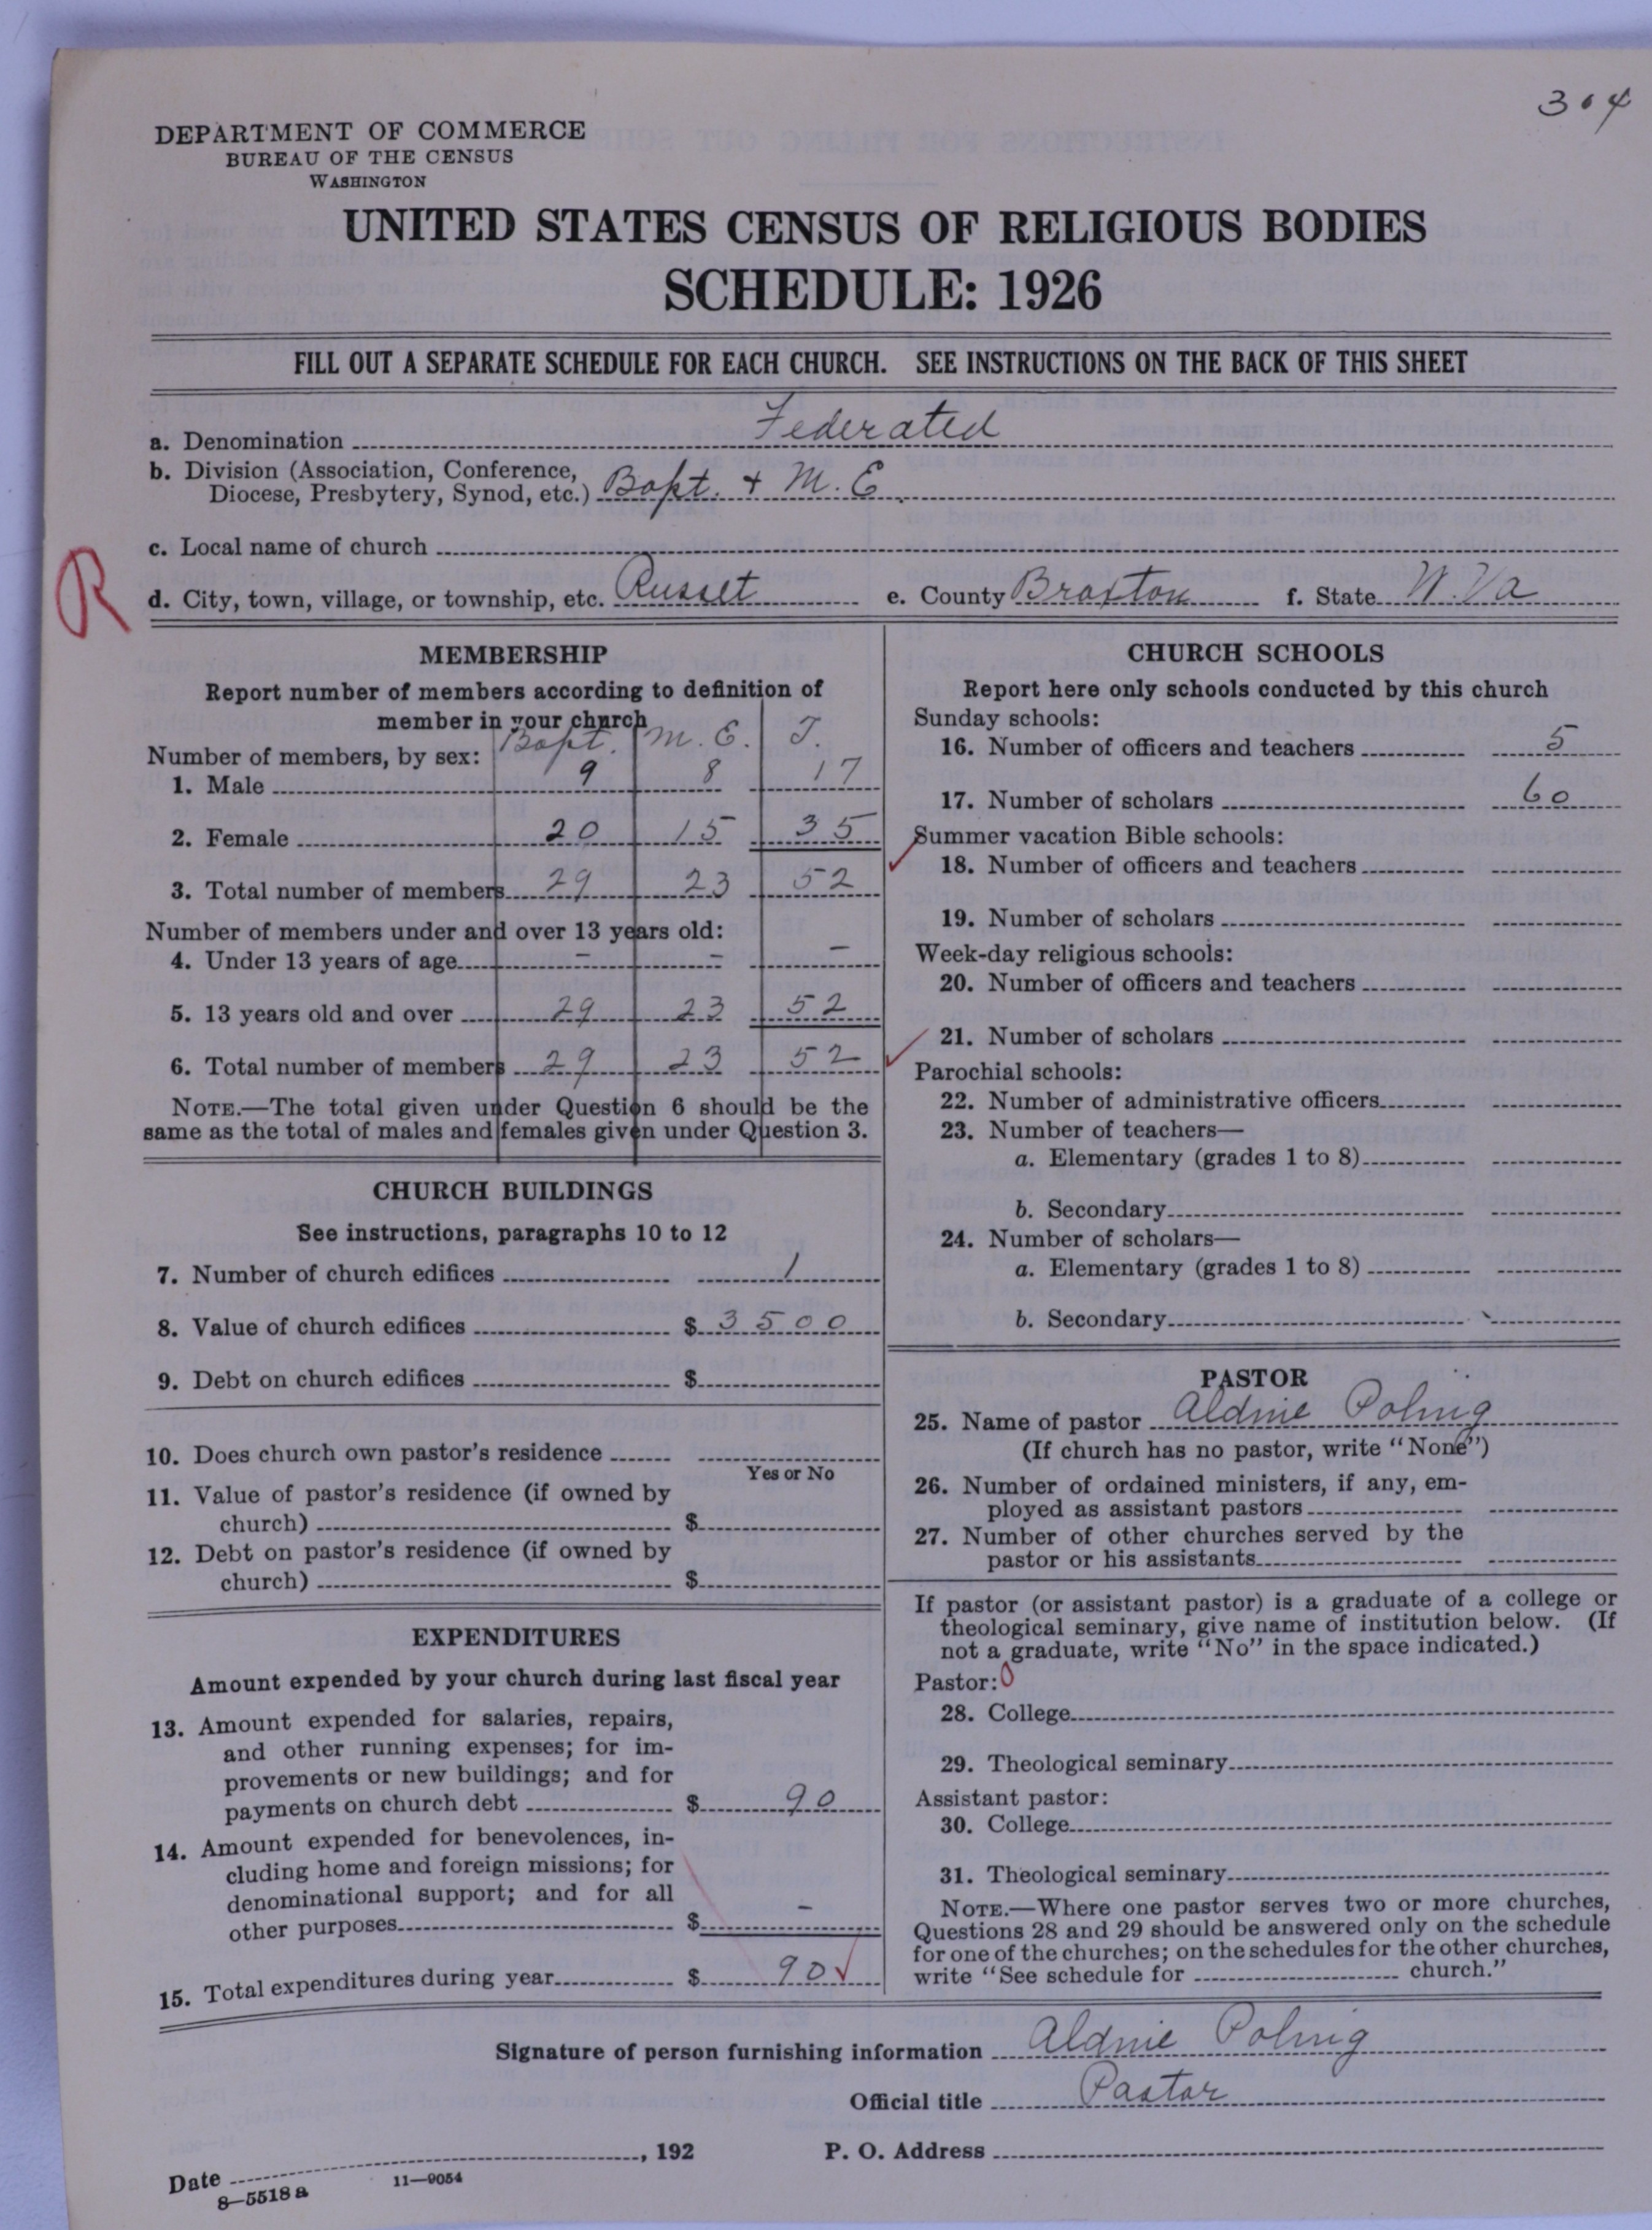 304
DEPARTMENT OF COMMERCE
BUREAU OF THE CENSUS
WASHINGTON
UNITED STATES CENSUS OF RELIGIOUS BODIES
SCHEDULE: 1926
FILL OUT A SEPARATE SCHEDULE FOR EACH CHURCH. SEE INSTRUCTIONS ON THE BACK OF THIS SHEET
a. Denomination Federated
b. Division (Association, Conference,
Diocese, Presbytery, Synod, etc.) Bapt. + M. E.
c. Local name of church
R
d. City, town, village, or township, etc. Russet e. County Braxton f. State W. Va
MEMBERSHIP
Report number of members according to definition of
member in your church
Bapt. M. E. T.
Number of members, by sex:
1. Male 9 8 17
2. Female 20 15 35
3. Total number of members 29 23 52
Number of members under and over 13 years old:
4. Under 13 years of age - - -
5. 13 years old and over 29 23 52
6. Total number of members 29 23 52
NOTE.—The total given under Question 6 should be the
same as the total of males and females given under Question 3.
CHURCH BUILDINGS
See instructions, paragraphs 10 to 12
7. Number of church edifices 1
8. Value of church edifices $ 3500
9. Debt on church edifices $
10. Does church own pastor's residence
Yes or No
11. Value of pastor's residence (if owned by
church) $
12. Debt on pastor's residence (if owned by
church) $
EXPENDITURES
Amount expended by your church during last fiscal year
13. Amount expended for salaries, repairs,
and other running expenses; for im-
provements or new buildings; and for
payments on church debt $ 90
14. Amount expended for benevolences, in-
cluding home and foreign missions; for
denominational support; and for all
other purposes $ -
15. Total expenditures during year $ 90 ✓
CHURCH SCHOOLS
Report here only schools conducted by this church
Sunday schools:
16. Number of officers and teachers 5
17. Number of scholars 60
Summer vacation Bible schools:
✓ 18. Number of officers and teachers
19. Number of scholars
Week-day religious schools:
20. Number of officers and teachers
✓ 21. Number of scholars
Parochial schools:
22. Number of administrative officers
23. Number of teachers—
a. Elementary (grades 1 to 8)
b. Secondary
24. Number of scholars—
a. Elementary (grades 1 to 8)
b. Secondary
PASTOR
25. Name of pastor Aldine Poling
(If church has no pastor, write "None")
26. Number of ordained ministers, if any, em-
ployed as assistant pastors
27. Number of other churches served by the
pastor or his assistants
If pastor (or assistant pastor) is a graduate of a college or
theological seminary, give name of institution below. (If
not a graduate, write "No" in the space indicated.)
Pastor: 0
28. College
29. Theological seminary
Assistant pastor:
30. College
31. Theological seminary
NOTE.—Where one pastor serves two or more churches,
Questions 28 and 29 should be answered only on the schedule
for one of the churches; on the schedules for the other churches,
write "See schedule for church."
Signature of person furnishing information Aldine Poling
Official title Pastor
Date , 192 P. O. Address
8—5518 a 11—9054